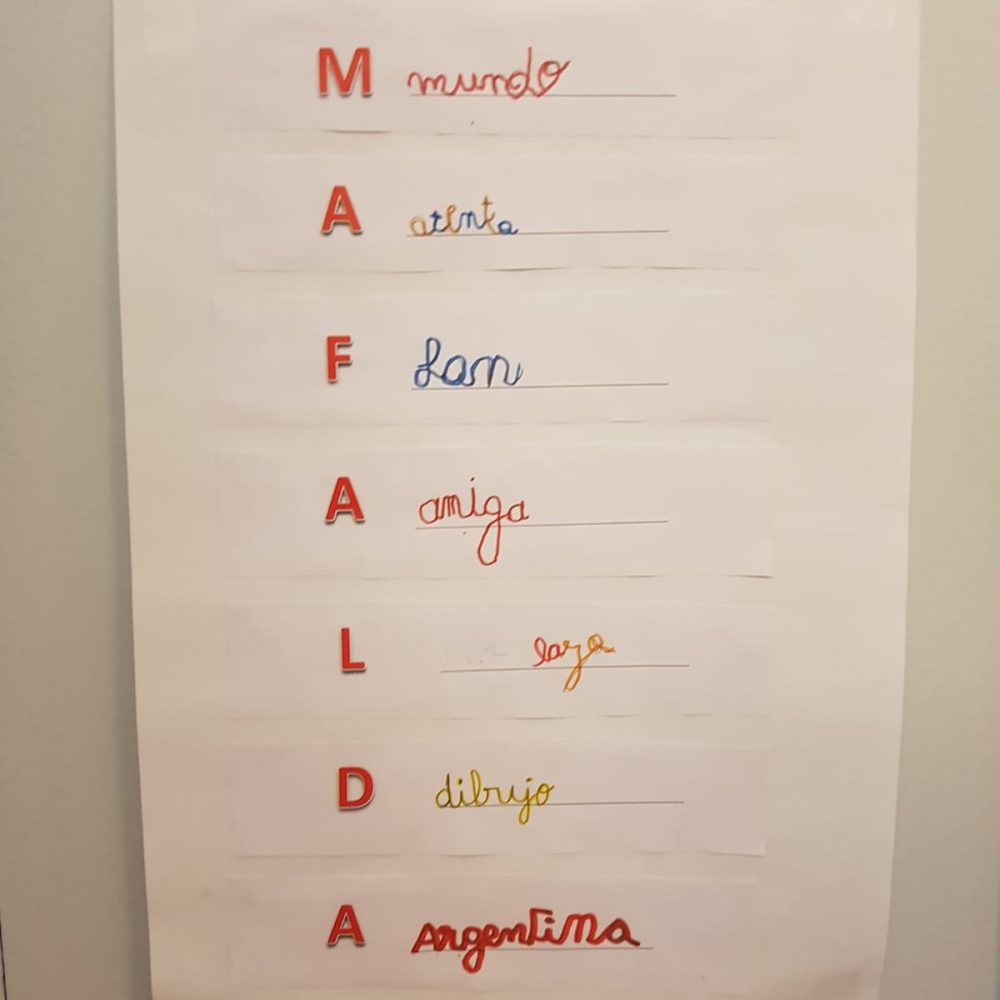 M mundo
A atenta
F fan
A amiga
L lazo
D dibujo
A Argentina